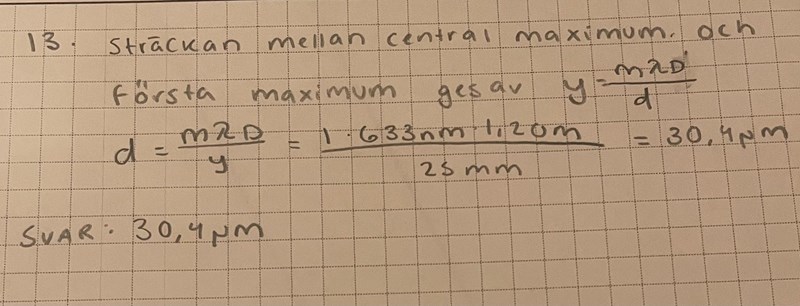 13. Sträckan mellan central maximum. och
första maximum ges av y = mλD / d
d = mλD / y = 1 · 633nm · 1,20m / 25 mm = 30,4 μm
SVAR: 30,4 μm